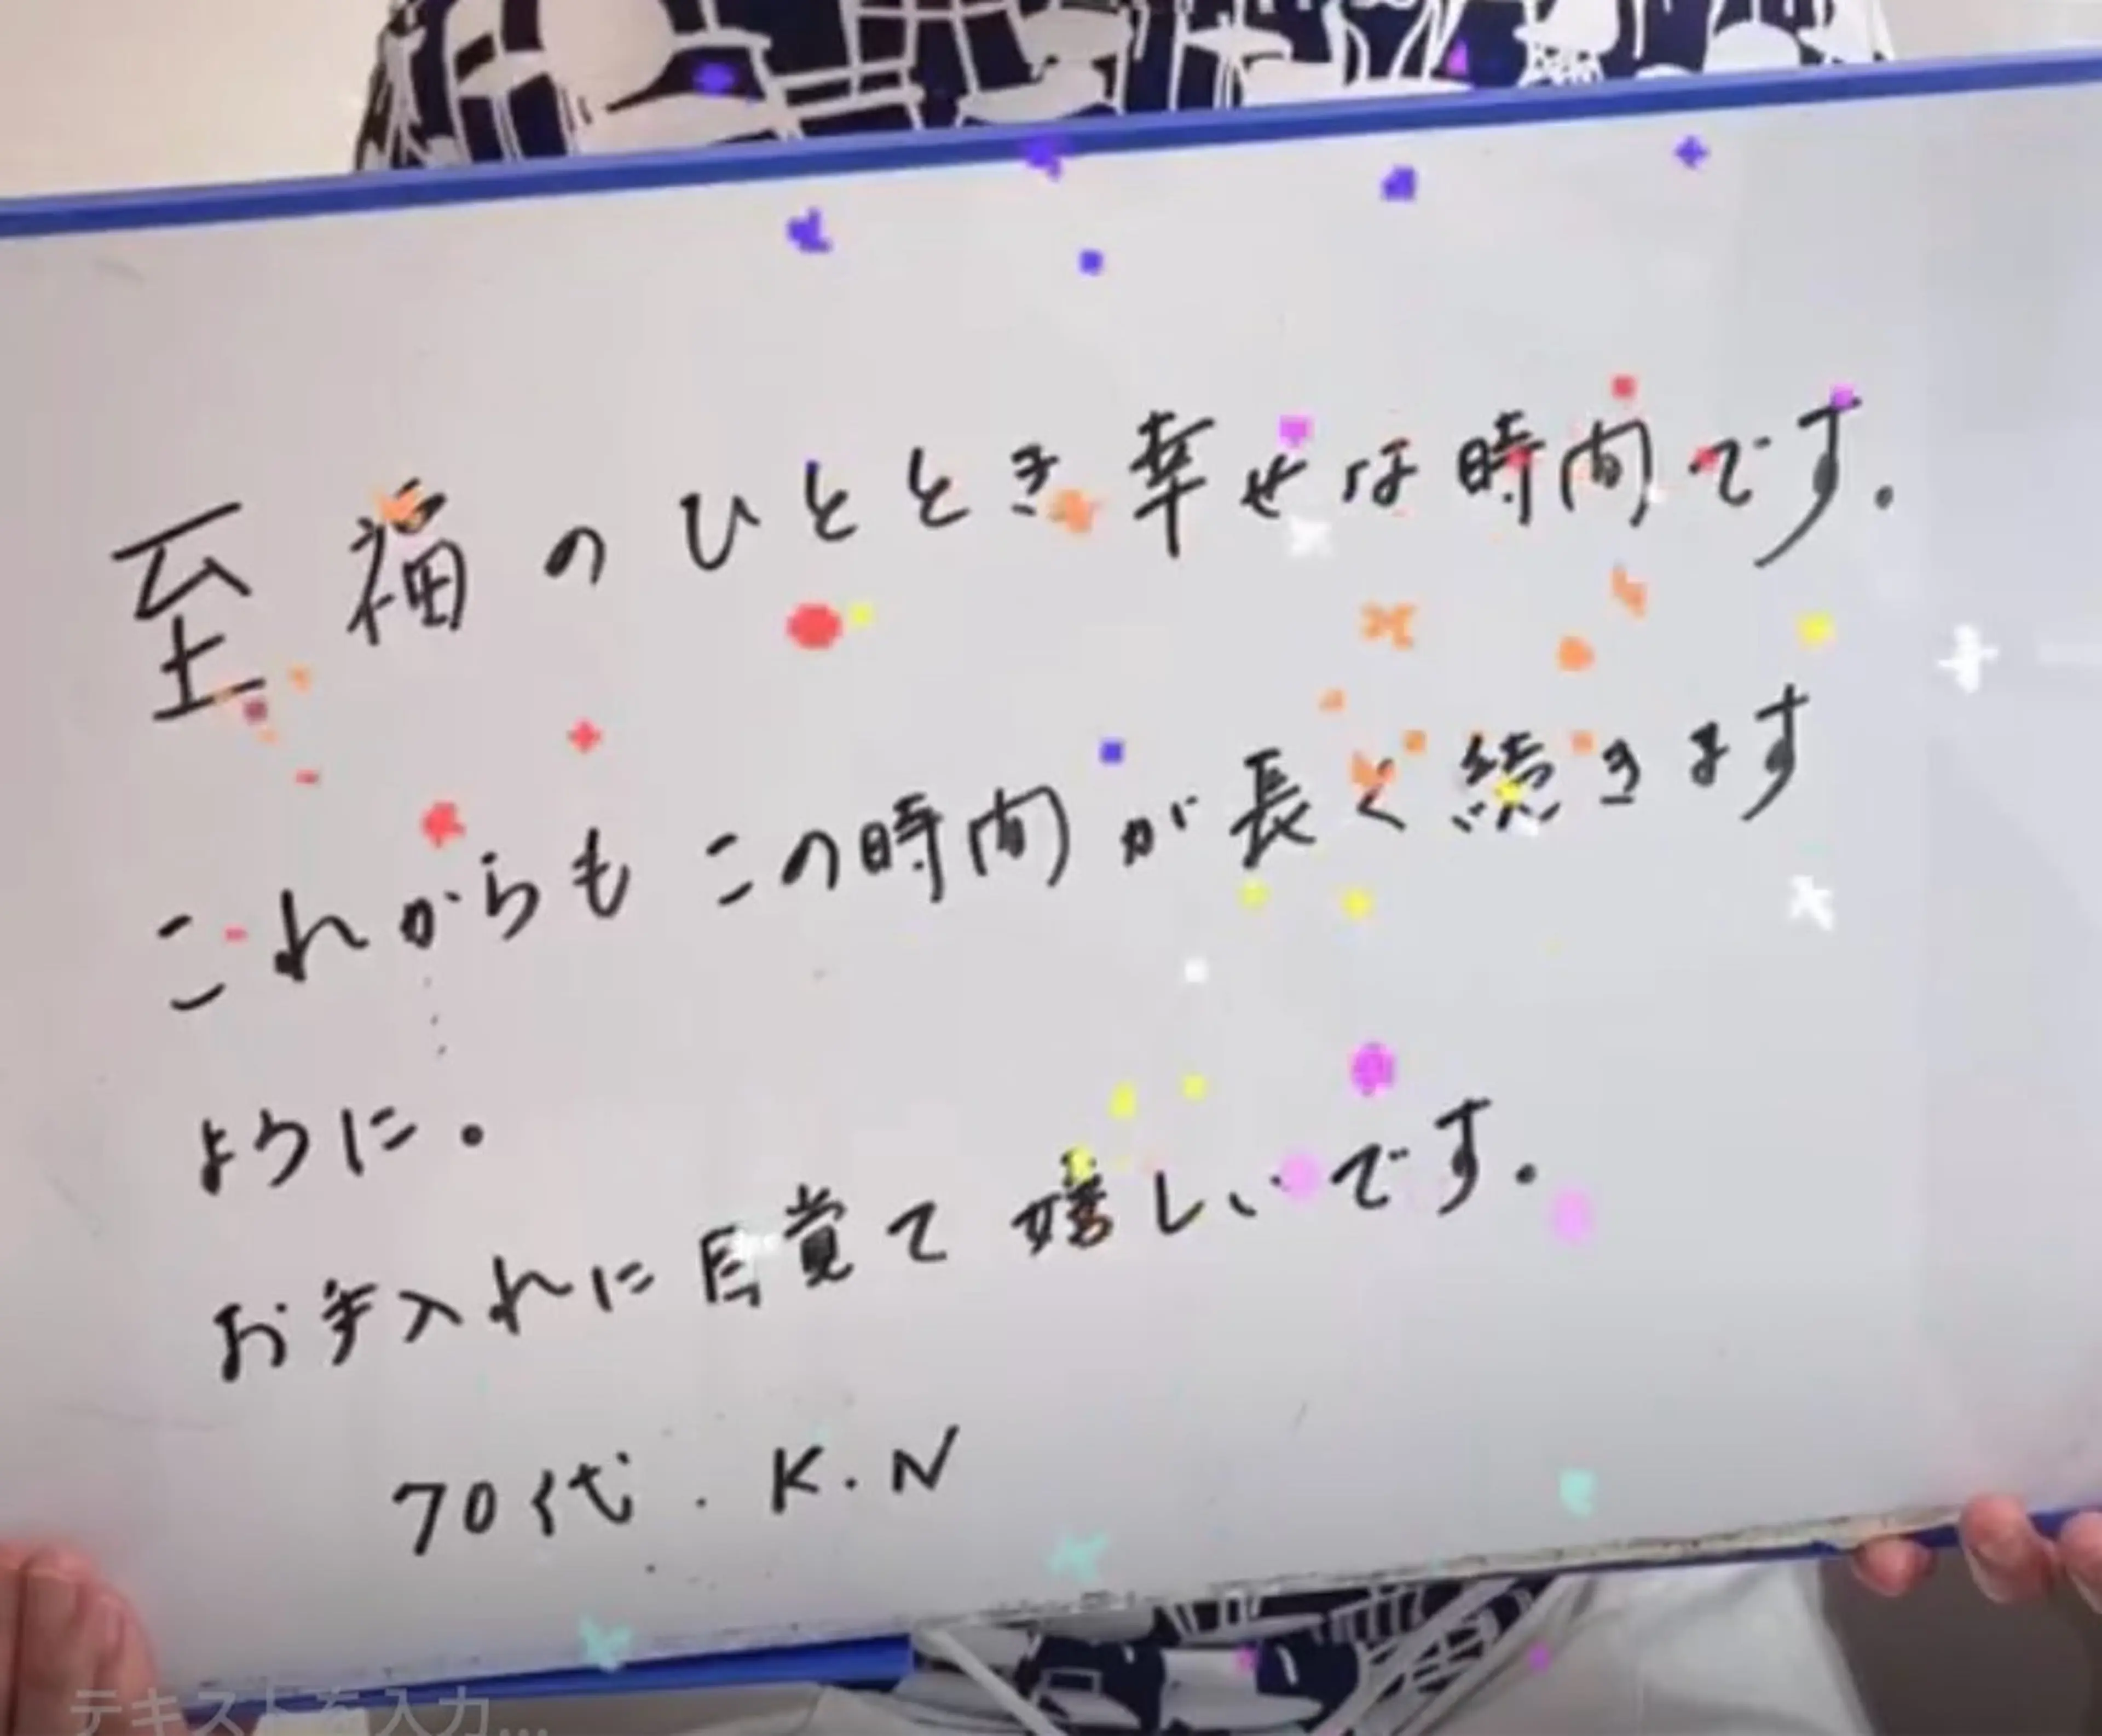 至福のひととき幸せな時間です.
これからもこの時間が長く続きます
ように。
お手入れに目覚て嬉しいです.
70代.K.N
テキストを入力...